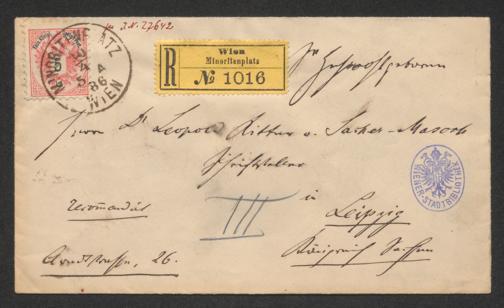 J.N. 27642
MINORITENPLATZ
WIEN
86
R
Wien
Minoritenplatz
№ 1016
Sr Hochwohlgeboren
Herrn Dr Leopold Ritter v. Sacher-Masoch
Schriftsteller
in
III
Leipzig
recommandirt
WIENER-STADTBIBLIOTHEK
Königreich Sachsen
Arndtstrasse, 26.